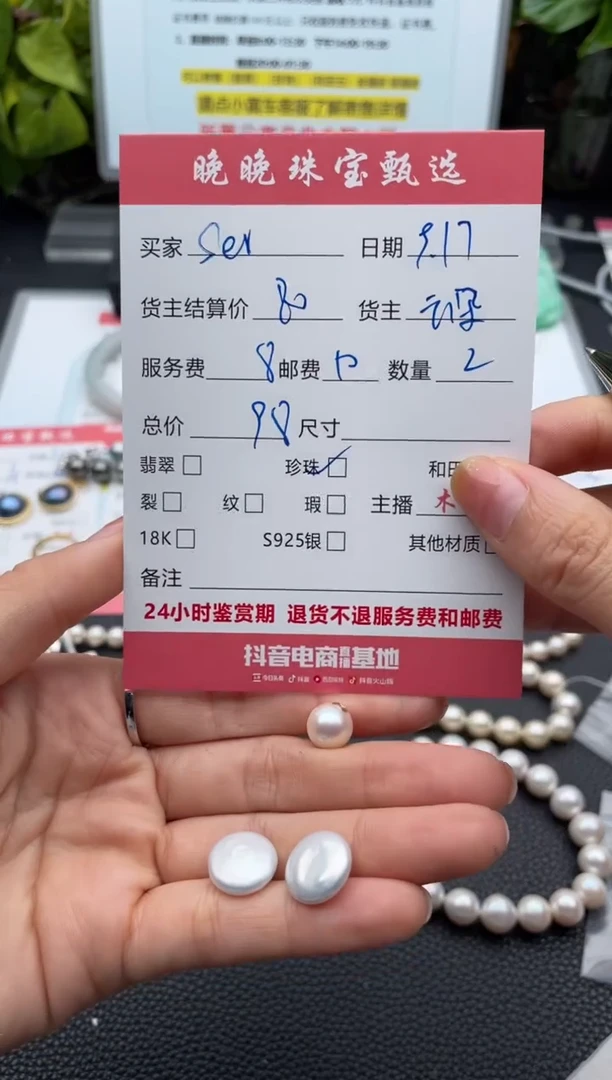 晚晚珠宝甄选
买家 Ser 日期 9.17
货主结算价 80 货主
服务费 8 邮费 10 数量 2
总价 98 尺寸
翡翠 珍珠 和田
裂 纹 瑕 主播 木
18K S925银 其他材质
备注
24小时鉴赏期 退货不退服务费和邮费
抖音电商直播基地
今日头条 抖音 西瓜视频 抖音火山版